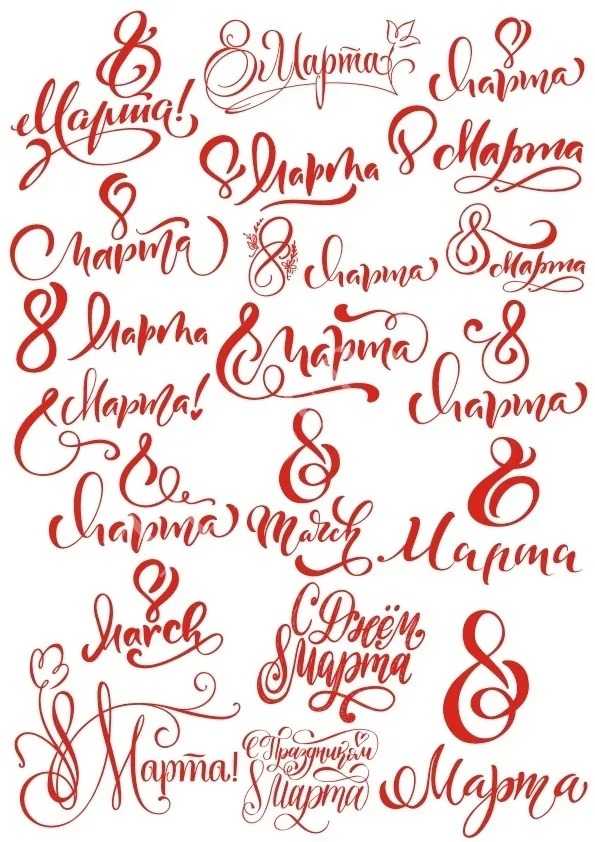 8
Марта!
8 Марта
8
Марта
8 Марта
8 Марта
8
Марта
8 Марта
8
Марта
8 Марта
8 Марта
8
Марта
8 Марта!
8
Марта
8
March
8
Марта
8
March
С Днём
8 Марта
8
Марта
8 Марта!
С Праздником
8 Марта